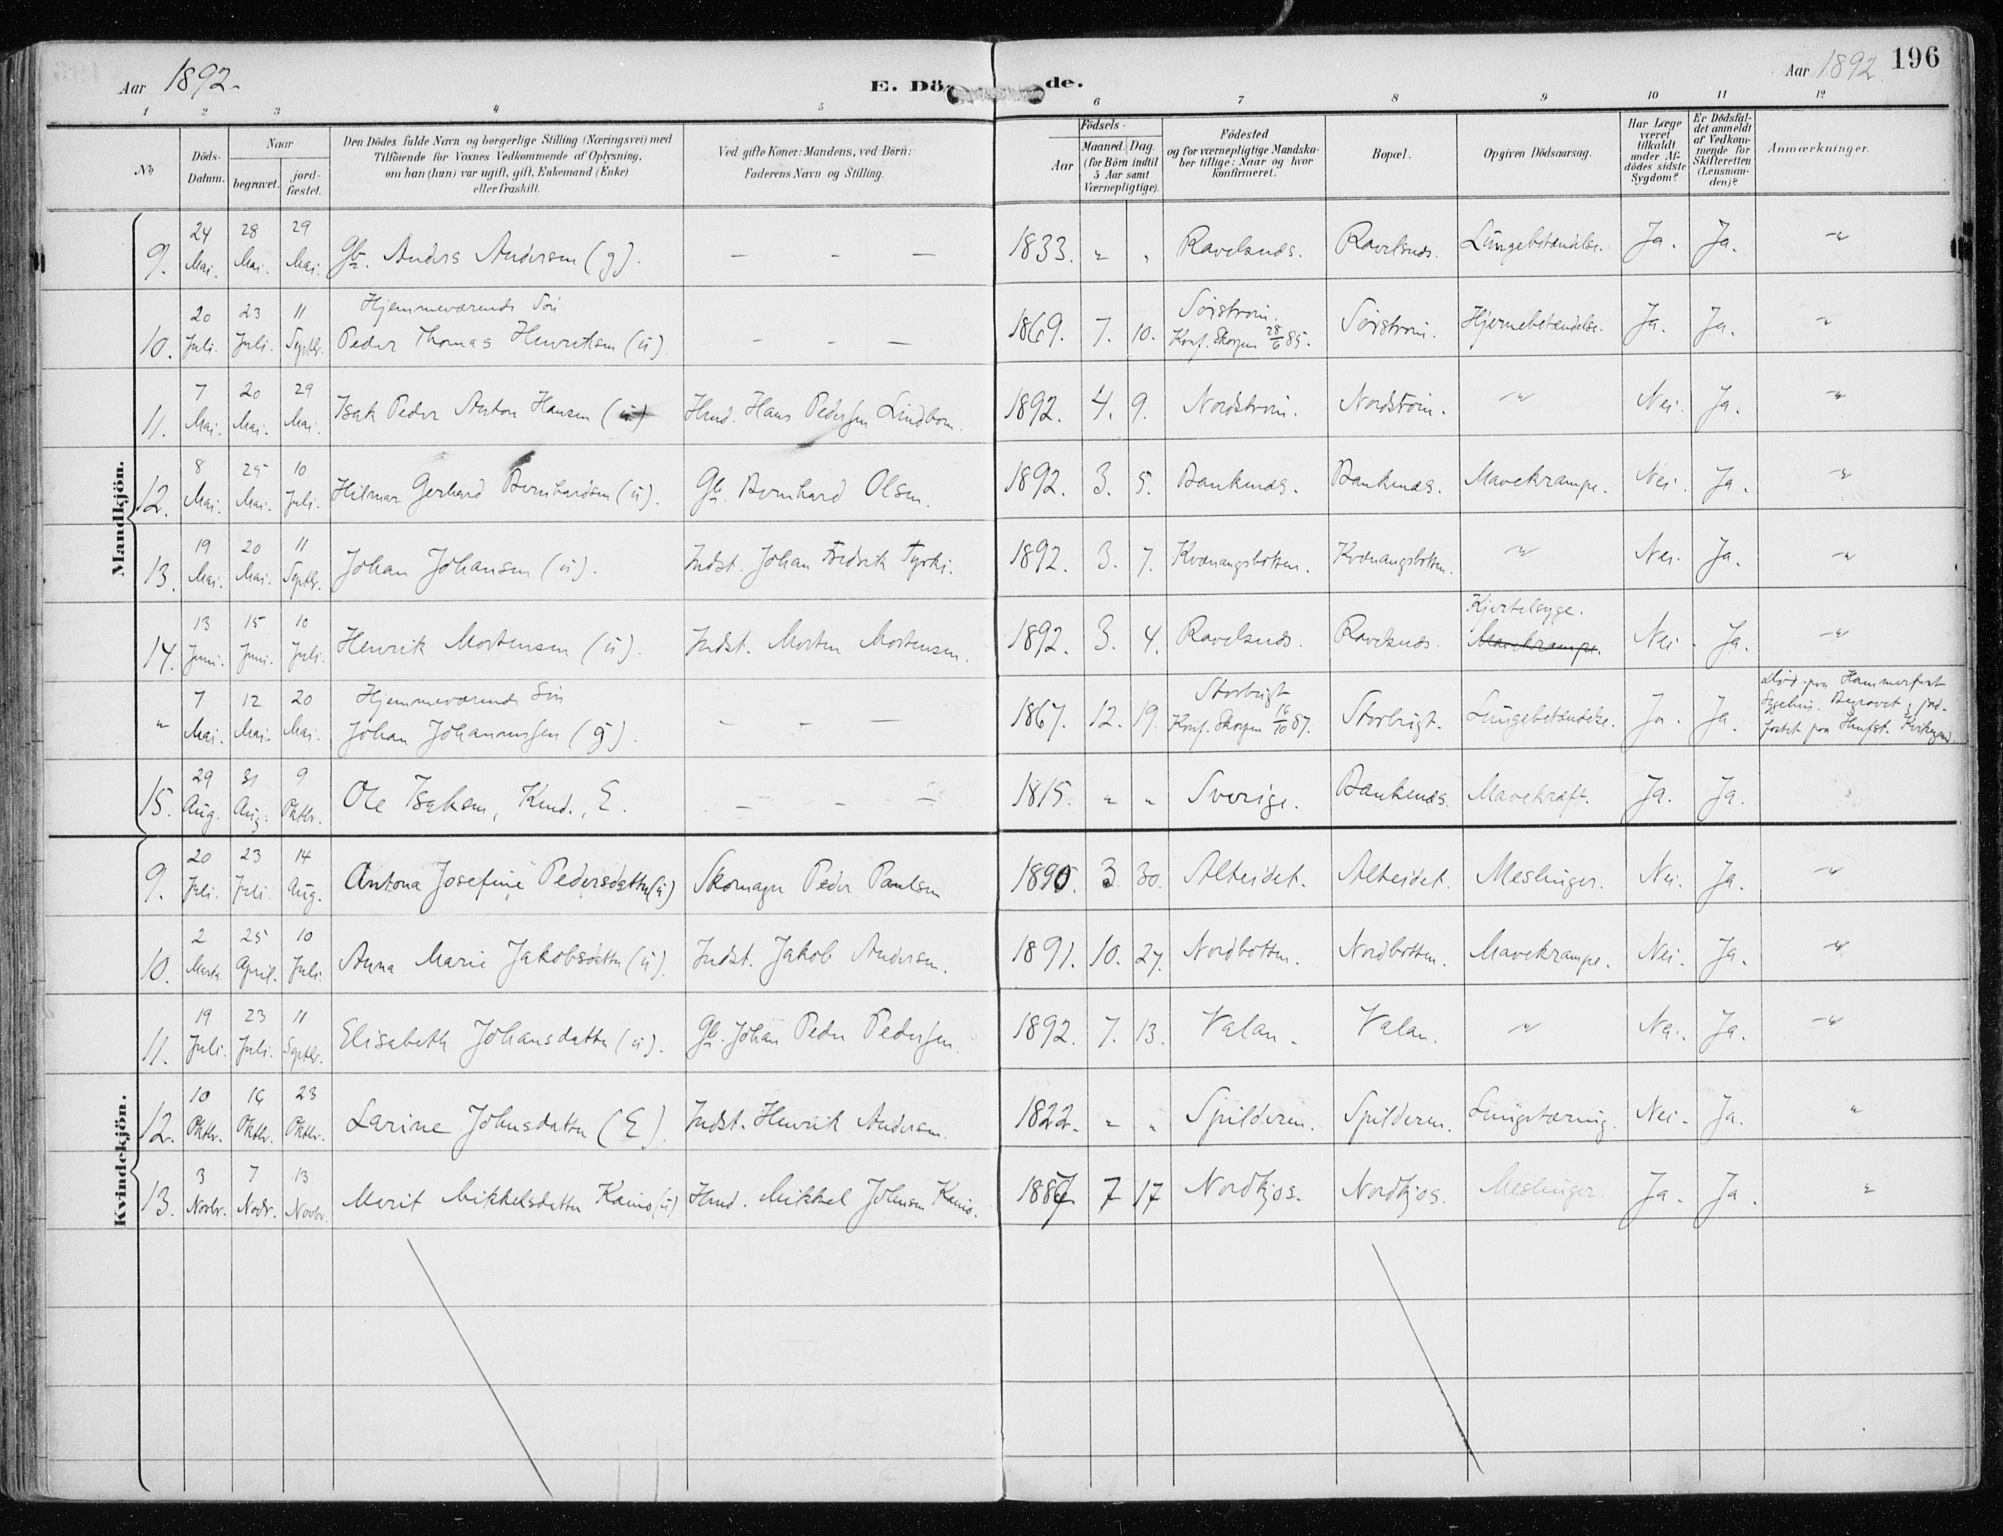 Aar 1892.
E. Dö
de.
Aar 1892
196
1 2 3 4 5 6 7 8 9 10 11 12
No
Döds-Datum.
Naar
begravet.
jord-fæstet.
Den Dödes fulde Navn og borgerlige Stilling (Næringsvei) med
Tilföiende for Voxnes Vedkommende af Oplysning,
om han (hun) var ugift, gift, Enkemand (Enke)
eller fraskilt.
Ved gifte Koner: Mandens, ved Börn:
Faderens Navn og Stilling.
Födsels-
Aar
Maaned.
Dag.
(for Börn indtil
5 Aar samt
Værnepligtige).
Födested
og for værnepligtige Mandska-
ber tillige: Naar og hvor
konfirmeret.
Bopæl.
Opgiven Dödsaarsag.
Har Læge
været
tilkaldt
under Af-
dödes sidste
Sygdom?
Er Dödsfal-
det anmeldt
af Vedkom-
mende for
Skifteretten
(Lensman-
den)?
Anmærkninger.
Mandkjön.
9. 24 Mai. 28 Mai. 29 Mai. Gbr. Anders Andersen (g). — — — 1833. " " Ravelsnæs. Ravelsnæs. Lungebetændelse. Ja. Ja. —"—
Hjemmeværende Søn
10. 20 Juli. 23 Juli. 11 Septbr. Peder Thomas Henriksen (u). — — — 1869. 7. 10. Sørstrøm. Konf. Skorpen 28/6 85. Sørstrøm. Hjernebetændelse. Ja. Ja. "
11. 7 Mai. 20 Mai. 29 Mai. Isak Peder Anton Hansen (u) Hmd. Hans Pedersen Lindbom. 1892. 4. 9. Nordstrøm. Nordstrøm. —"— Nei. Ja. —"—
12. 8 Mai. 25 Mai. 10 Juli. Hilmar Gerhard Bernhardsen (u). Gbr. Bernhard Olsen. 1892. 3. 5. Bankenæs. Bankenæs. Mavekrampe. Nei. Ja. —"—
13. 19 Mai. 20 Mai. 11 Septbr. Johan Johansen (u). Indst. Johan Fredrik Tyrki. 1892. 3. 7. Kvænangsbotten. Kvænangsbotten. —"— Nei. Ja. —"—
14. 13 Juni. 15 Juni. 10 Juli. Henrik Mortensen (u). Indst. Morten Mortensen. 1892. 3. 4. Ravelsnæs. Ravelsnæs. Kjertelsyge. Mavekrampe. Nei. Ja. —"—
Hjemmeværende Søn
" 7 Mai. 12 Mai. 20 Mai. Johan Johannessen (g). — — — 1867. 12. 19. Storbugt Konf. Skorpen 16/10 87. Storbugt. Lungebetændelse. Ja. Ja Død paa Hammerfest
Sygehus. Begravet & jord-
fæstet paa Hmfst. Kirkegaard.
15. 29 Aug. 31 Aug. 9 Oktbr. Ole Isaksen, Kmd., E. — — — 1815. " " Sverige. Bankenæs. Mavekræft. Ja. Ja.
Kvindekjön.
9. 20 Juli. 23 Juli. 14 Aug. Antona Josefine Pedersdatter (u) Skomager Peder Paulsen 1890. 3 30. Alteidet. Alteidet. Meslinger. Nei. Ja. —"—
10. 2 Marts. 25 April. 10 Juli. Anna Marie Jakobsdatter (u). Indst. Jakob Andersen. 1891. 10. 27. Nordbotten. Nordbotten. Mavekrampe. Nei. Ja. —"—
11. 19 Juli. 23 Juli. 11 Septbr. Elisabeth Johansdatter (u). Gbr. Johan Peder Pedersen. 1892. 7. 13. Valan. Valan. —"— Nei. Ja. —"—
12. 10 Oktbr. 16 Oktbr. 23 Oktbr. Larine Johnsdatter (E). Indst. Henrik Andersen. 1822. " " Spilderen. Spilderen. Lungetæring. Nei. Ja. "
13. 3 Novbr. 7 Novbr. 13 Novbr. Merit Mikkelsdatter Kaino (u) Hmd. Mikkel Johnsen Kaino. 1887 7 17 Nordkjos. Nordkjos. Meslinger Ja. Ja. "